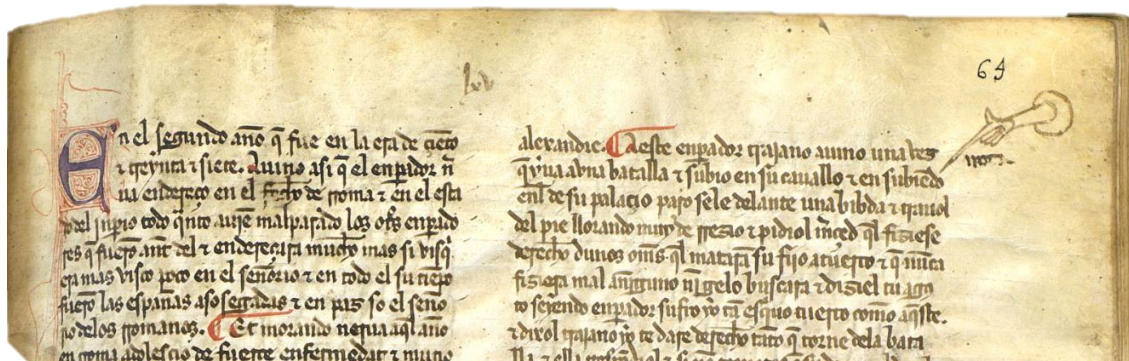 lxv
64
En el segundo año q̃ fue en la era de çiẽto
⁊ treynta ⁊ siete. Auino asi q̃ el enpador n̄
ua endereço en el fecho de rroma ⁊ en el esta
do del jnpio todo q̃nto auje malparado los oĩs enpado
res q̃ fuerõ ant del ⁊ endereçara mucho mas si visq̃
era mas visco poco en el señorio ⁊ en todo el su tiẽpo
fuerõ las españas asosegadas ⁊ en paz so el seño
rio delos rromanos. Et morando nerua aq̃l año
en rroma adolesçio de fuerte enfermedat ⁊ murio
alexandre. Aeste enpador trajano auino una vez
q̃ yua a vna batalla ⁊ subio en su cauallo ⁊ en subiẽdo
enl de su palaçio paro sele delante una bibda ⁊ trauol
del pie llorando muy de rrezio ⁊ pidiol m̃çed q̃l fiziese
derecho dunos om̃s q̃l matarã su fijo atuerto ⁊ q̃ nũca
fiziera mal aninguno nj̃ gelo buscara ⁊ dizjel tu ago
to seyendo enpador sufro yo tã esquo tuerto como aq̃ste.
⁊ dixol trajano yo te dare derecho tãto q̃ torne dela bata
lla ⁊ ella